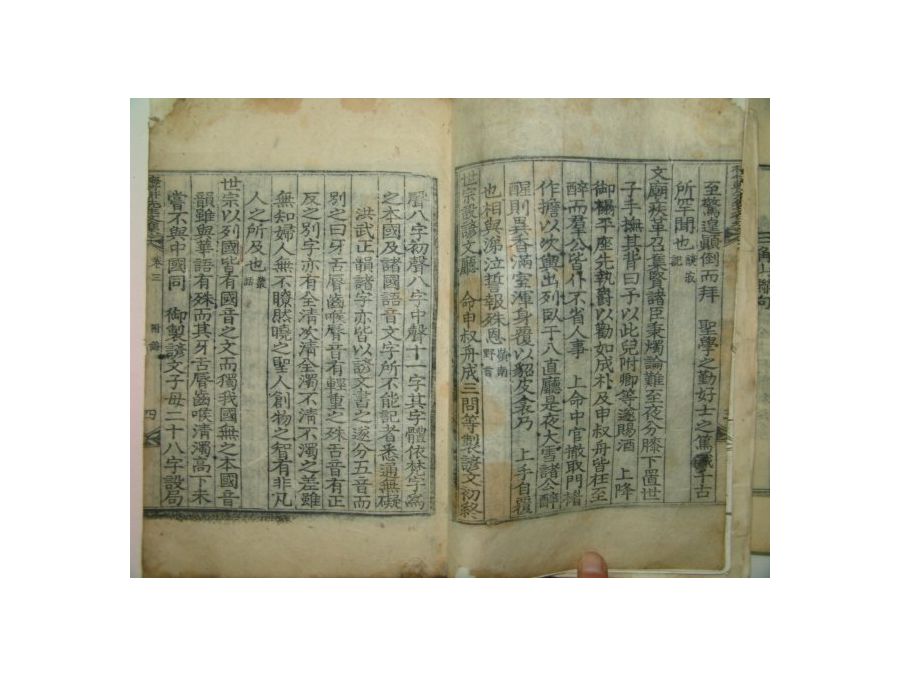 至驚遑顚倒而拜 聖學之勤好士之篤 千古
所罕聞也
文廟疾革召集賢諸臣秉燭論難至夜分膝下置世
子手撫其背曰予以此兒附卿等遂賜酒 上降
御榻平座先執爵以勸如成朴及申叔舟皆在至
醉而羣公皆仆不省人事 上命中官撤取門楣
作擔以次輿出列臥于入直廳是夜大雪諸公醉
醒則異香滿室渾身覆以貂皮衾乃 上手自覆
也相與涕泣誓報殊恩 野言
世宗設諺文廳 命申叔舟成三問等製諺文初終
聲八字初聲八字中聲十一字其字體依梵字爲
之本國及諸國語音文字所不能記者悉通無礙
洪武正韻諸字亦皆以諺文書之遂分五音而
別之曰牙舌脣齒喉脣音有輕重之殊舌音有正
反之別字亦有全淸次淸全濁不淸不濁之差雖
無知婦人無不瞭然曉之聖人創物之智有非凡
人之所及也 叢話
世宗以列國皆有國音之文而獨我國無之本國音
韻雖與華語有殊而其牙舌脣齒喉淸濁高下未
嘗不與中國同 御製諺文子母二十八字設局
卷三 附錄 四